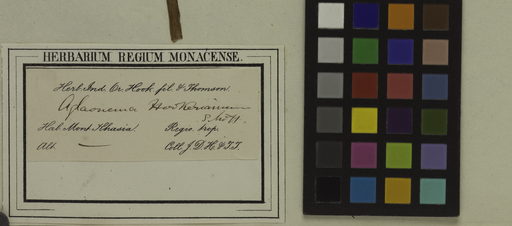 HERBARIUM REGIUM MONACENSE.
Herb. Ind. Or. Hook. fil. & Thomson.
Aglaonema Hookerianum
Schott.
Hab. Mont. Khasia. Regio trop.
Alt. — Coll. J. D. H. & T. T.